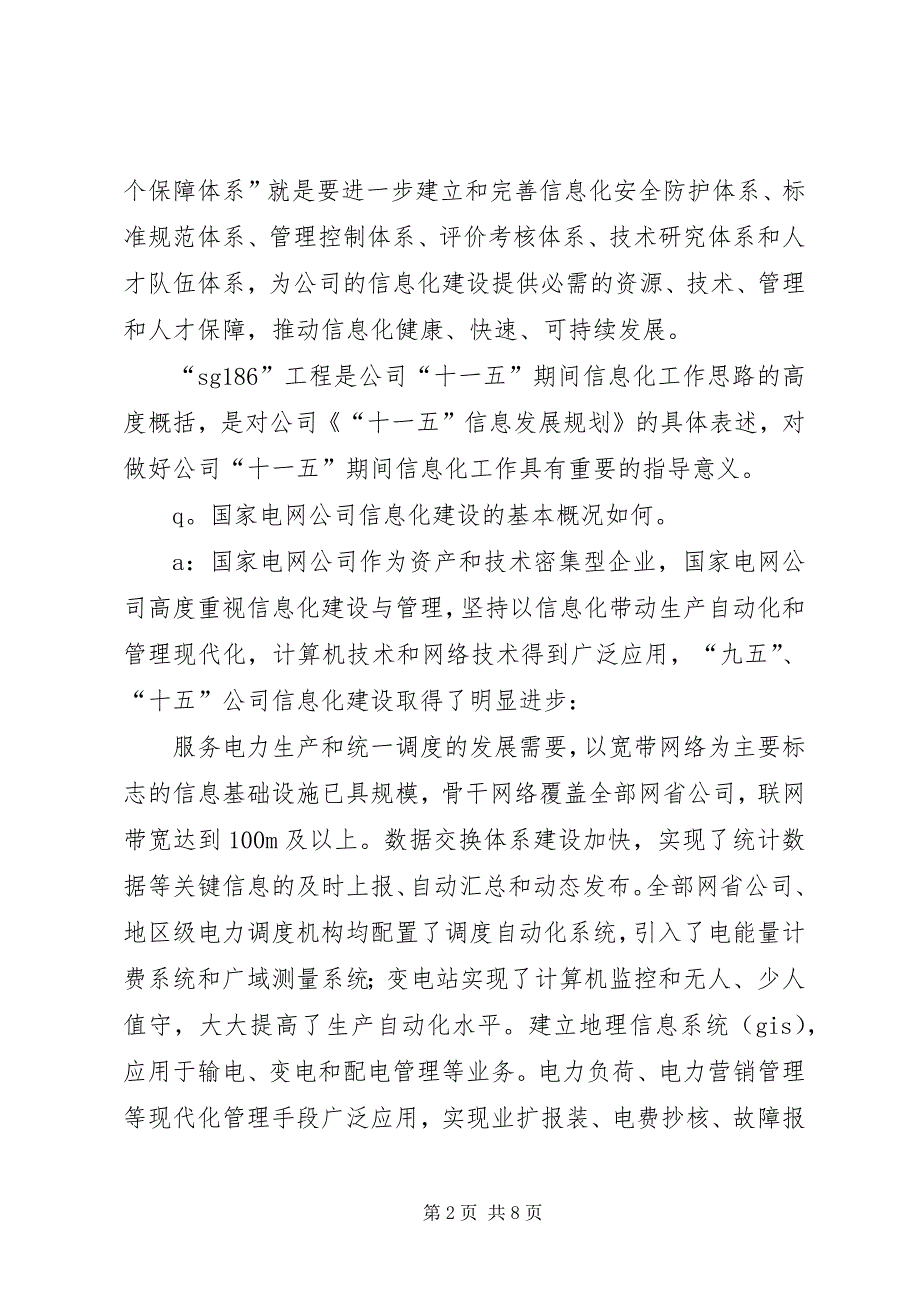 个保障体系”就是要进一步建立和完善信息化安全防护体系、标
准规范体系、管理控制体系、评价考核体系、技术研究体系和人
才队伍体系，为公司的信息化建设提供必需的资源、技术、管理
和人才保障，推动信息化健康、快速、可持续发展。
“sg186”工程是公司“十一五”期间信息化工作思路的高
度概括，是对公司《“十一五”信息发展规划》的具体表述，对
做好公司“十一五”期间信息化工作具有重要的指导意义。
q。国家电网公司信息化建设的基本概况如何。
a：国家电网公司作为资产和技术密集型企业，国家电网公
司高度重视信息化建设与管理，坚持以信息化带动生产自动化和
管理现代化，计算机技术和网络技术得到广泛应用，“九五”、
“十五”公司信息化建设取得了明显进步：
服务电力生产和统一调度的发展需要，以宽带网络为主要标
志的信息基础设施已具规模，骨干网络覆盖全部网省公司，联网
带宽达到 100m 及以上。数据交换体系建设加快，实现了统计数
据等关键信息的及时上报、自动汇总和动态发布。全部网省公司、
地区级电力调度机构均配置了调度自动化系统，引入了电能量计
费系统和广域测量系统；变电站实现了计算机监控和无人、少人
值守，大大提高了生产自动化水平。建立地理信息系统（gis），
应用于输电、变电和配电管理等业务。电力负荷、电力营销管理
等现代化管理手段广泛应用，实现业扩报装、电费抄核、故障报
第 2 页 共 8 页